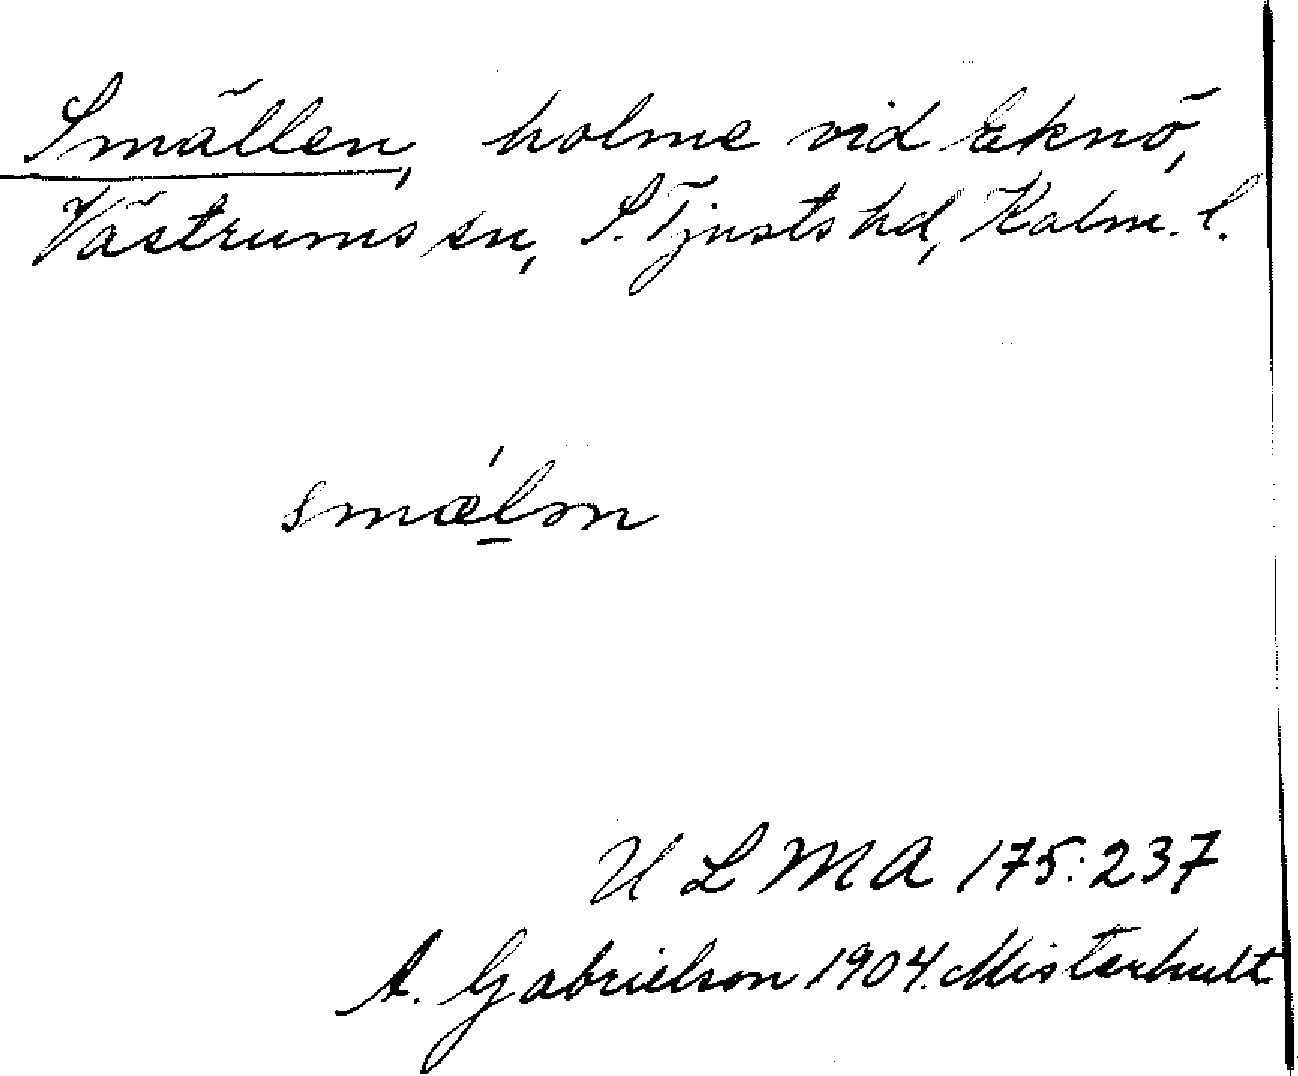 Smällen, holme vid Eknö,
Västrums sn, S. Tjusts hd, Kalm. l.
smælən
ULMA 175:237
A. Gabrielson 1904. Misterhult